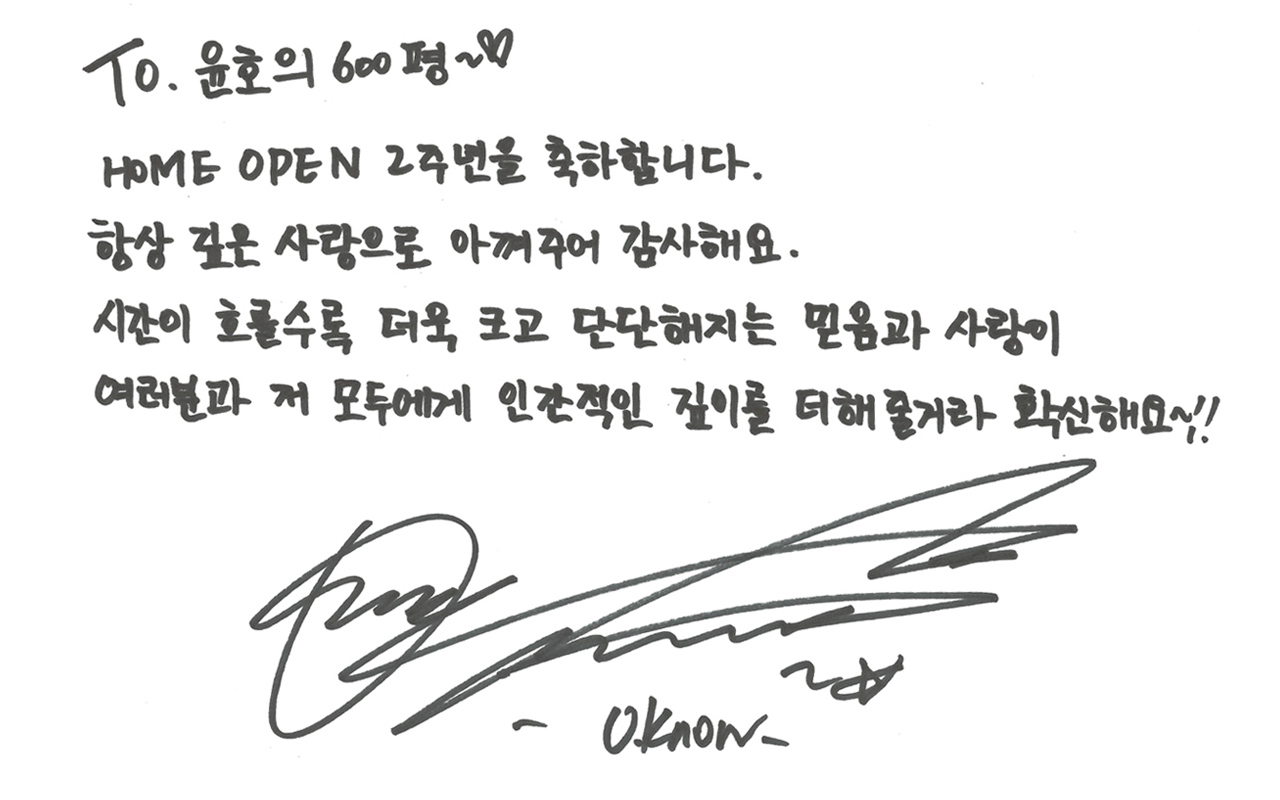 To. 윤호의 600평~♡
HOME OPEN 2주년을 축하합니다.
항상 깊은 사랑으로 아껴주어 감사해요.
시간이 흐를수록 더욱 크고 단단해지는 믿음과 사랑이
여러분과 저 모두에게 인간적인 깊이를 더해줄거라 확신해요~!!
~☆
- U.Know -